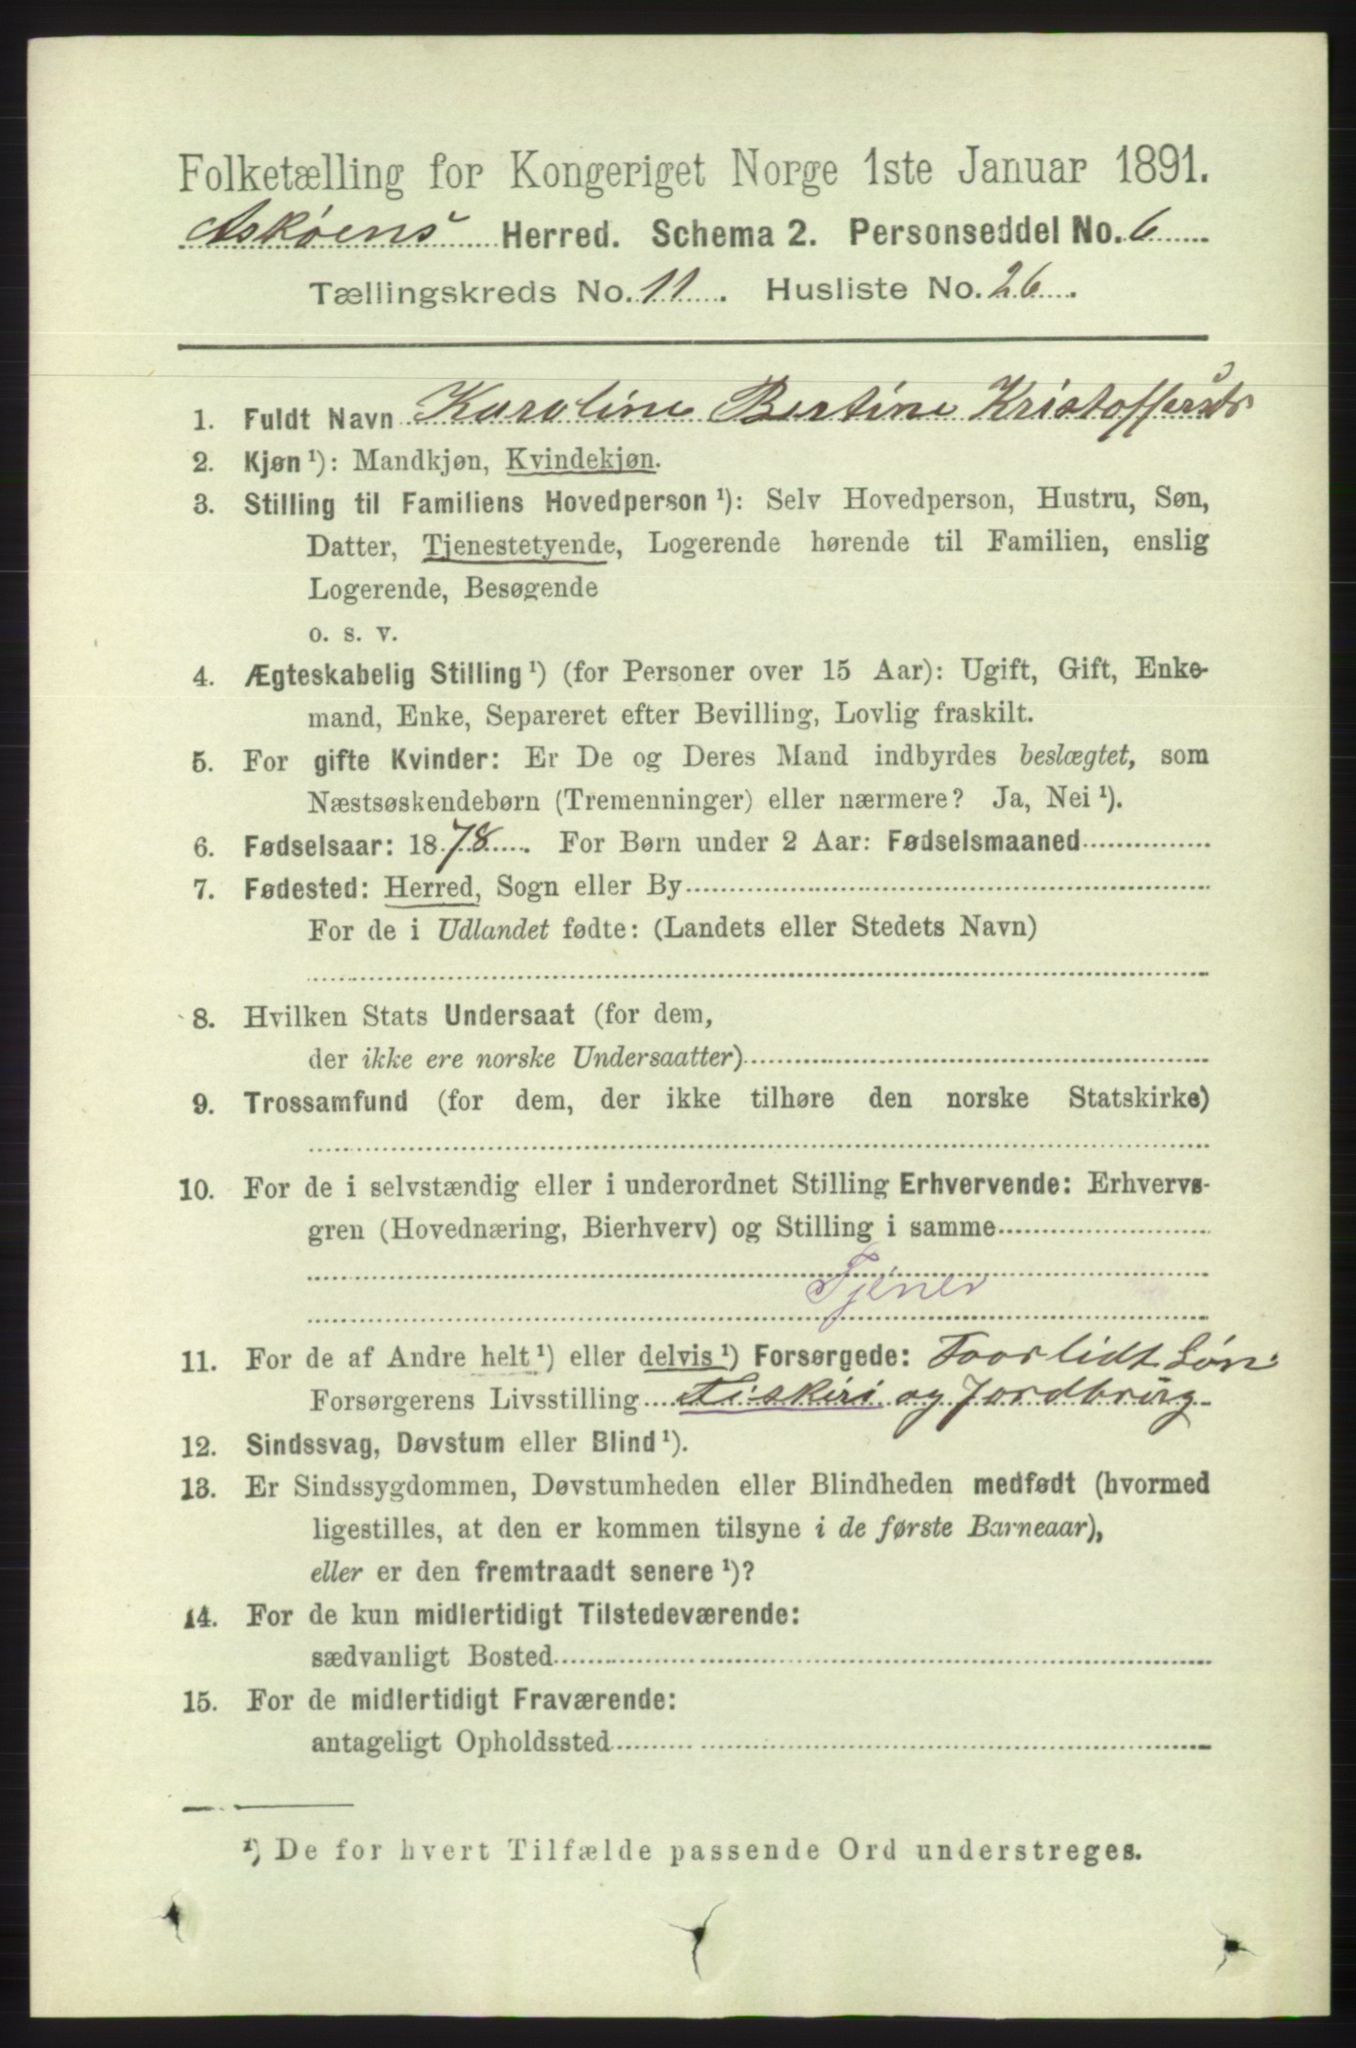 Folketælling for Kongeriget Norge 1ste Januar 1891.
Askøens Herred. Schema 2. Personseddel No. 6
Tællingskreds No. 11. Husliste No. 26.
1. Fuldt Navn Karoline Bertine Kristoffersdr
2. Kjøn ¹): Mandkjøn, Kvindekjøn.
3. Stilling til Familiens Hovedperson ¹): Selv Hovedperson, Hustru, Søn,
Datter, Tjenestetyende, Logerende hørende til Familien, enslig
Logerende, Besøgende
o. s. v.
4. Ægteskabelig Stilling ¹) (for Personer over 15 Aar): Ugift, Gift, Enke-
mand, Enke, Separeret efter Bevilling, Lovlig fraskilt.
5. For gifte Kvinder: Er De og Deres Mand indbyrdes beslægtet, som
Næstsøskendebørn (Tremenninger) eller nærmere? Ja, Nei ¹).
6. Fødselsaar: 1878. For Børn under 2 Aar: Fødselsmaaned
7. Fødested: Herred, Sogn eller By
For de i Udlandet fødte: (Landets eller Stedets Navn)
8. Hvilken Stats Undersaat (for dem,
der ikke ere norske Undersaatter)
9. Trossamfund (for dem, der ikke tilhøre den norske Statskirke)
10. For de i selvstændig eller i underordnet Stilling Erhvervende: Erhvervs-
gren (Hovednæring, Bierhverv) og Stilling i samme
Tjener
11. For de af Andre helt ¹) eller delvis ¹) Forsørgede: Foorlidt Løn
Forsørgerens Livsstilling Fiskiri og Jordbrug
12. Sindssvag, Døvstum eller Blind ¹).
13. Er Sindssygdommen, Døvstumheden eller Blindheden medfødt (hvormed
ligestilles, at den er kommen tilsyne i de første Barneaar),
eller er den fremtraadt senere ¹)?
14. For de kun midlertidigt Tilstedeværende:
sædvanligt Bosted
15. For de midlertidigt Fraværende:
antageligt Opholdssted
¹) De for hvert Tilfælde passende Ord understreges.